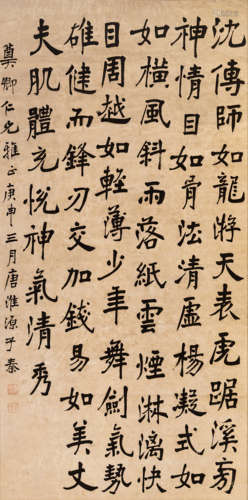 沈傳師如龍游天表虎踞溪旁
神情自如骨法清虛楊凝式如
如橫風斜雨落紙雲煙淋漓快
目周越如輕薄少年舞劍氣勢
雄健而鋒刃交加錢易如美丈
夫肌體充悅神氣清秀
冀卿仁兄雅正庚申三月唐淮源于秦